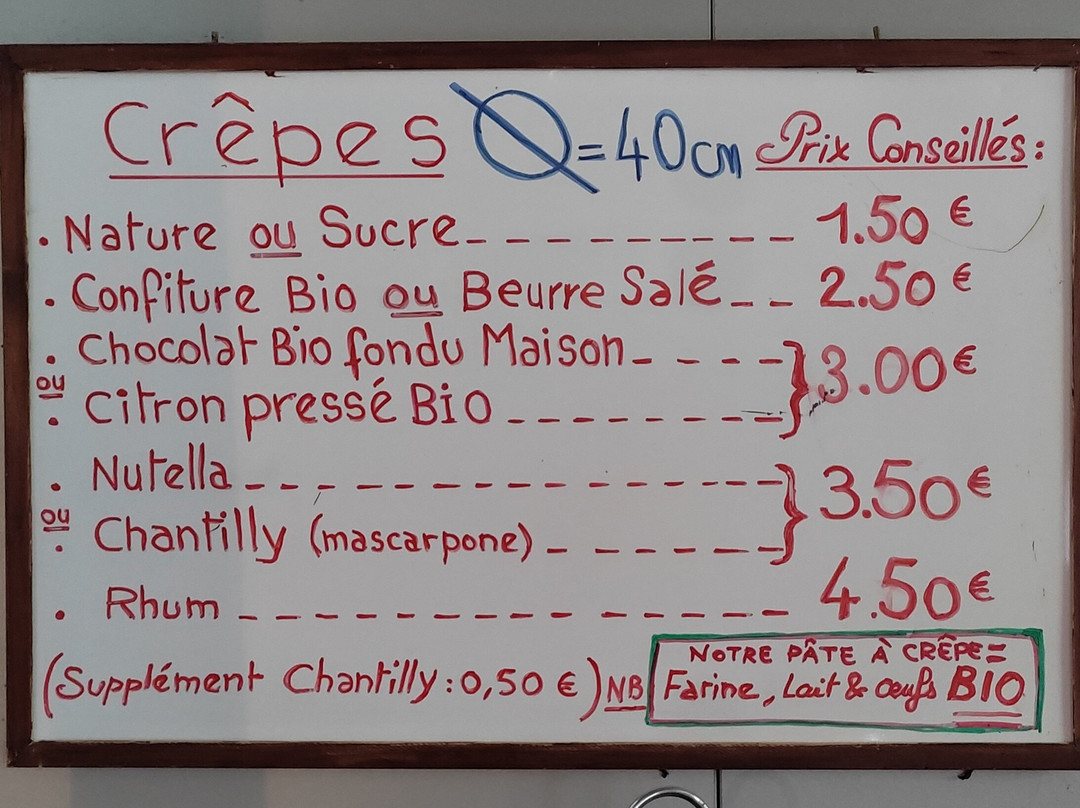 Crêpes Ø=40cm Prix Conseillés:
. Nature ou Sucre---------- 1.50 €
. Confiture Bio ou Beurre Salé-- 2.50 €
. Chocolat Bio fondu Maison---- } 3.00€
ou
. Citron pressé Bio----------
. Nutella---------------- } 3.50€
ou
. Chantilly (mascarpone)------
. Rhum -------------- 4.50€
(Supplément Chantilly: 0,50 €) NB
NOTRE PÂTE À CRÊPE=
Farine, Lait & œufs BIO